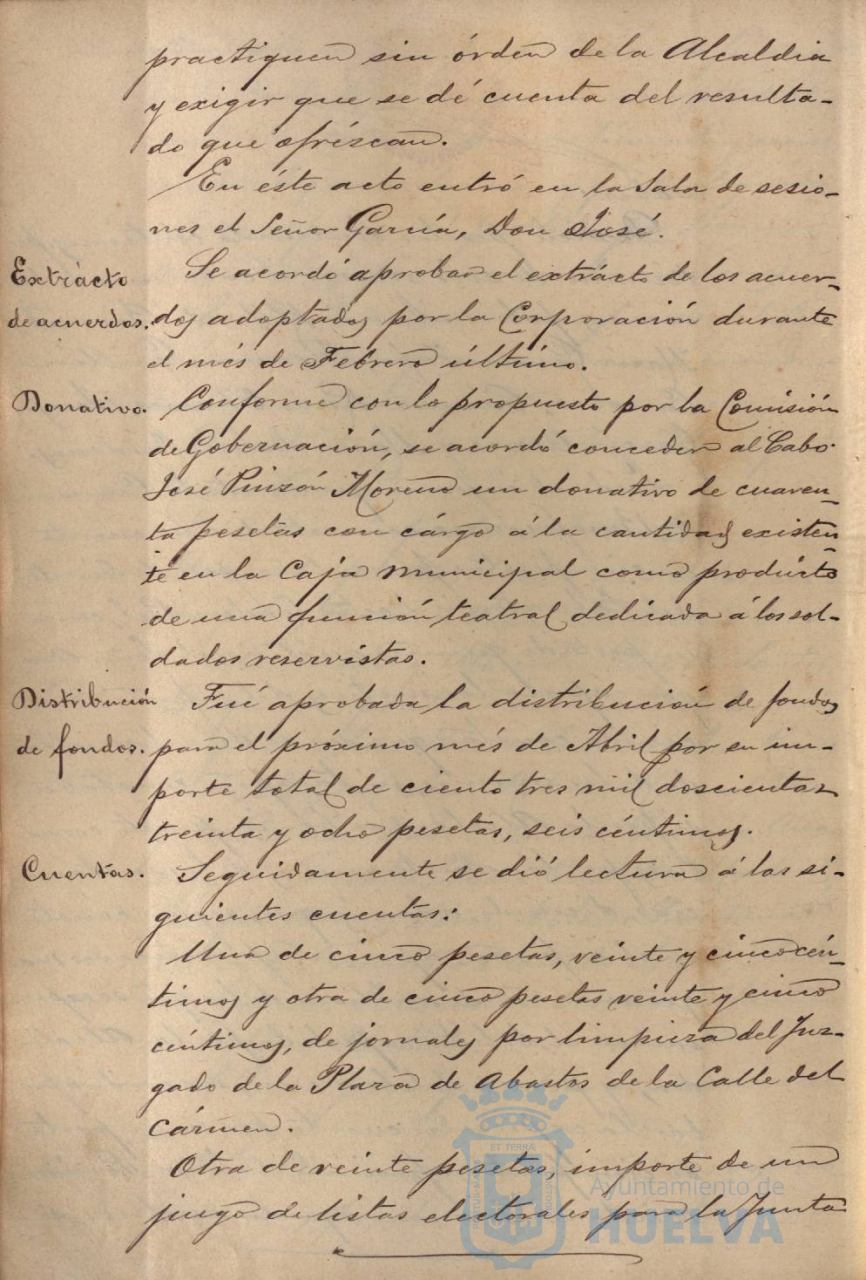 practiquen sin órden de la Alcaldia
y exigir que se dé cuenta del resulta-
do que ofréscan.
En éste acto entró en la Sala de sesio-
nes el Señor García, Don José.
Extrácto
de acuerdos.
Se acordó aprobar el extrácto de los acuer-
dos adoptados por la Corporación durante
el més de Febrero último.
Donativo.
Conforme con lo propuesto por la Comisión
de Gobernación, se acordó conceder al Cabo
José Pinzón Moreno un donativo de cuaren-
ta pesetas con cárgo á la cantidad existen-
te en la Caja municipal como producto
de una función teatral dedicada á los sol-
dados reservistas.
Distribución
de fondos.
Fué aprobada la distribución de fondos
para el próximo més de Abril por su im-
porte total de ciento tres mil doscientas
treinta y ocho pesetas, seis céntimos.
Cuentas.
Seguidamente se dió lectura á las si-
guientes cuentas:
Una de cinco pesetas, veinte y cinco cén-
timos y otra de cinco pesetas veinte y cinco
céntimos, de jornales por limpieza del Juz-
gado de la Plaza de Abastos de la Calle del
Cármen.
Otra de veinte pesetas, importe de un
juego de listas electorales para la Junta
Ayuntamiento de
HUELVA